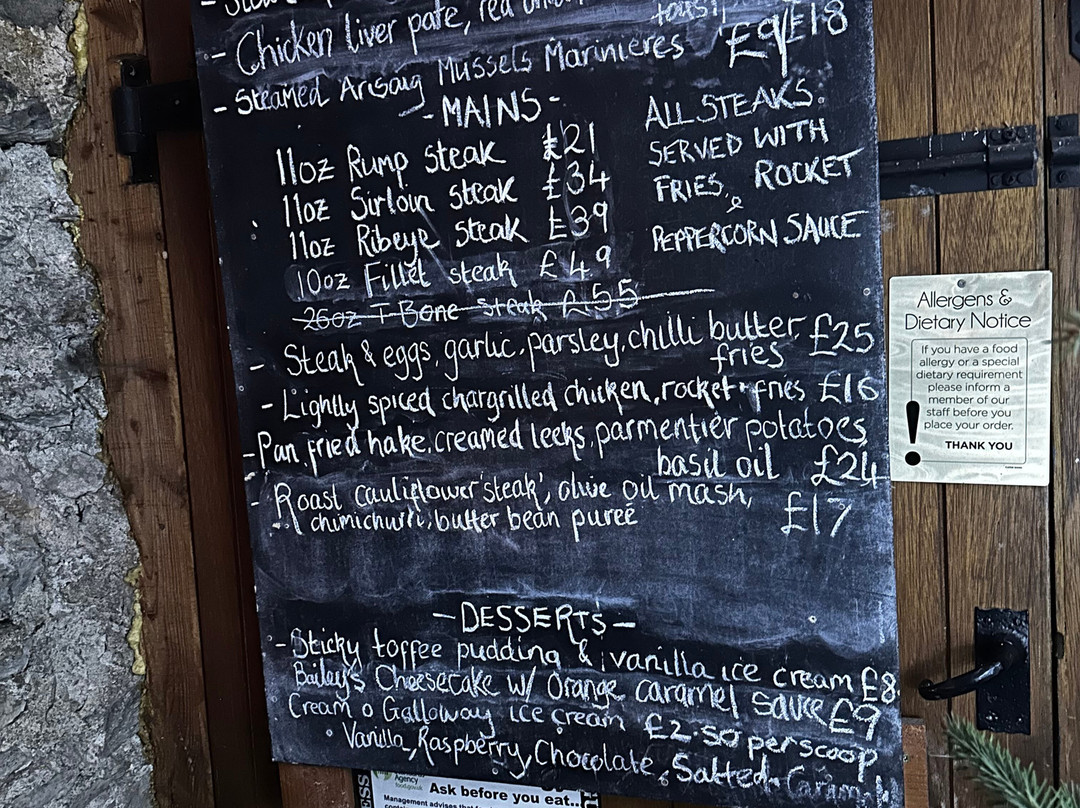 - Chicken liver pate, red
toast
- Steamed Arisaig Mussels Marinieres £9/£18
- MAINS -
11oz Rump steak £21
11oz Sirloin steak £34
11oz Ribeye steak £39
10oz Fillet steak £49
26oz T-Bone Steak £55
ALL STEAKS.
SERVED WITH
FRIES, ROCKET
&
PEPPERCORN SAUCE
- Steak & eggs, garlic, parsley, chilli butter,
fries £25
- Lightly spiced chargrilled chicken, rocket + fries £16
- Pan fried hake, creamed leeks, parmentier potatoes,
basil oil £24
- Roast cauliflower 'steak', olive oil mash,
chimichurri, butter bean puree £17
- DESSERTS -
- Sticky toffee pudding & vanilla ice cream £8
Bailey's Cheesecake w/ Orange caramel sauce £9
Cream o Galloway ice cream £2.50 per scoop
Vanilla, Raspberry, Chocolate, Salted Caramel
Allergens &
Dietary Notice
If you have a food
allergy or a special
dietary requirement
please inform a
member of our
staff before you
place your order.
THANK YOU
Agency
food.gov.uk
Ask before you eat...
Management advises that